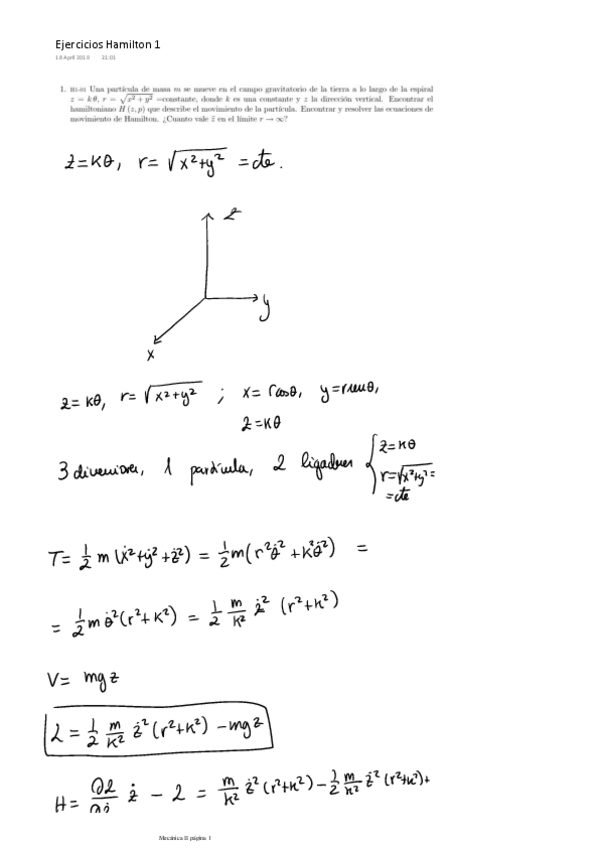 Ejercicios Hamilton 1
18 April 2019 21:01
1. H1-01 Una partícula de masa m se mueve en el campo gravitatorio de la tierra a lo largo de la espiral
z = kθ, r = √(x² + y²) =constante, donde k es una constante y z la dirección vertical. Encontrar el
hamiltoniano H (z, p) que describe el movimiento de la partícula. Encontrar y resolver las ecuaciones de
movimiento de Hamilton. ¿Cuanto vale z̈ en el límite r → ∞?
z=kθ, r= √(x²+y²) = cte.
z
y
x
z=kθ, r= √(x²+y²) ; x= rcosθ, y=rsenθ,
z=kθ
3 dimensiones, 1 partícula, 2 ligaduras { z=kθ
r=√(x²+y²) =
=cte
T= 1/2 m (ẋ²+ẏ²+ż²) = 1/2 m(r²θ̇²+k²θ̇²) =
= 1/2 m θ̇²(r²+k²) = 1/2 m/k² ż² (r²+k²)
V= mgz
L = 1/2 m/k² ż²(r²+k²) -mgz
H= ∂L/∂ż ż - L = m/k² ż²(r²+k²) - 1/2 m/k² ż² (r²+k²)+
Mecánica II página 1